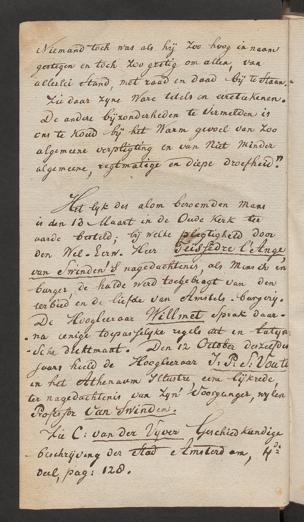 Niemand toch was als hij zoo hoog in naam
gestegen en toch zoo gretig om allen, van
allerlei stand, met raad en daad bij te staan.
Zie daar zyne Ware titels en eereteekenen.
De andere bijzonderheden te vermelden is
ons te koud bij het Warm gevoel van zoo
algemeene verpligting en van Niet minder
algemeene, regtmatige en diepe droefheid."
Het lyk des alom beroemden Mans
is den 13 Maart in de Oude Kerk ter
aarde besteld; bij welke plegtigheid door
den Wel-Eerw. Heer Teissedre l'Ange,
van Swinden's nagedachtenis, als Mensch en
burger de hulde werd toegebragt van den
eerbied en de liefde van Amstels burgerij.
De Hoogleeraar Willmet sprak daar-
na eenige toepasselyke regels dit en Latijn-
sche dichtmaat. Den 12 October deszelfden
jaars hield de Hoogleeraar J. P. S. Voute
in het Athenaeum Illustre eene lijkrede,
ter nagedachtenis van zyn Voorganger, wylen
Professor van Swinden.
Zie C: van der Vijver Geschiedkundige
beschrijving der stad Amsterdam, 4de
deel, pag: 128.